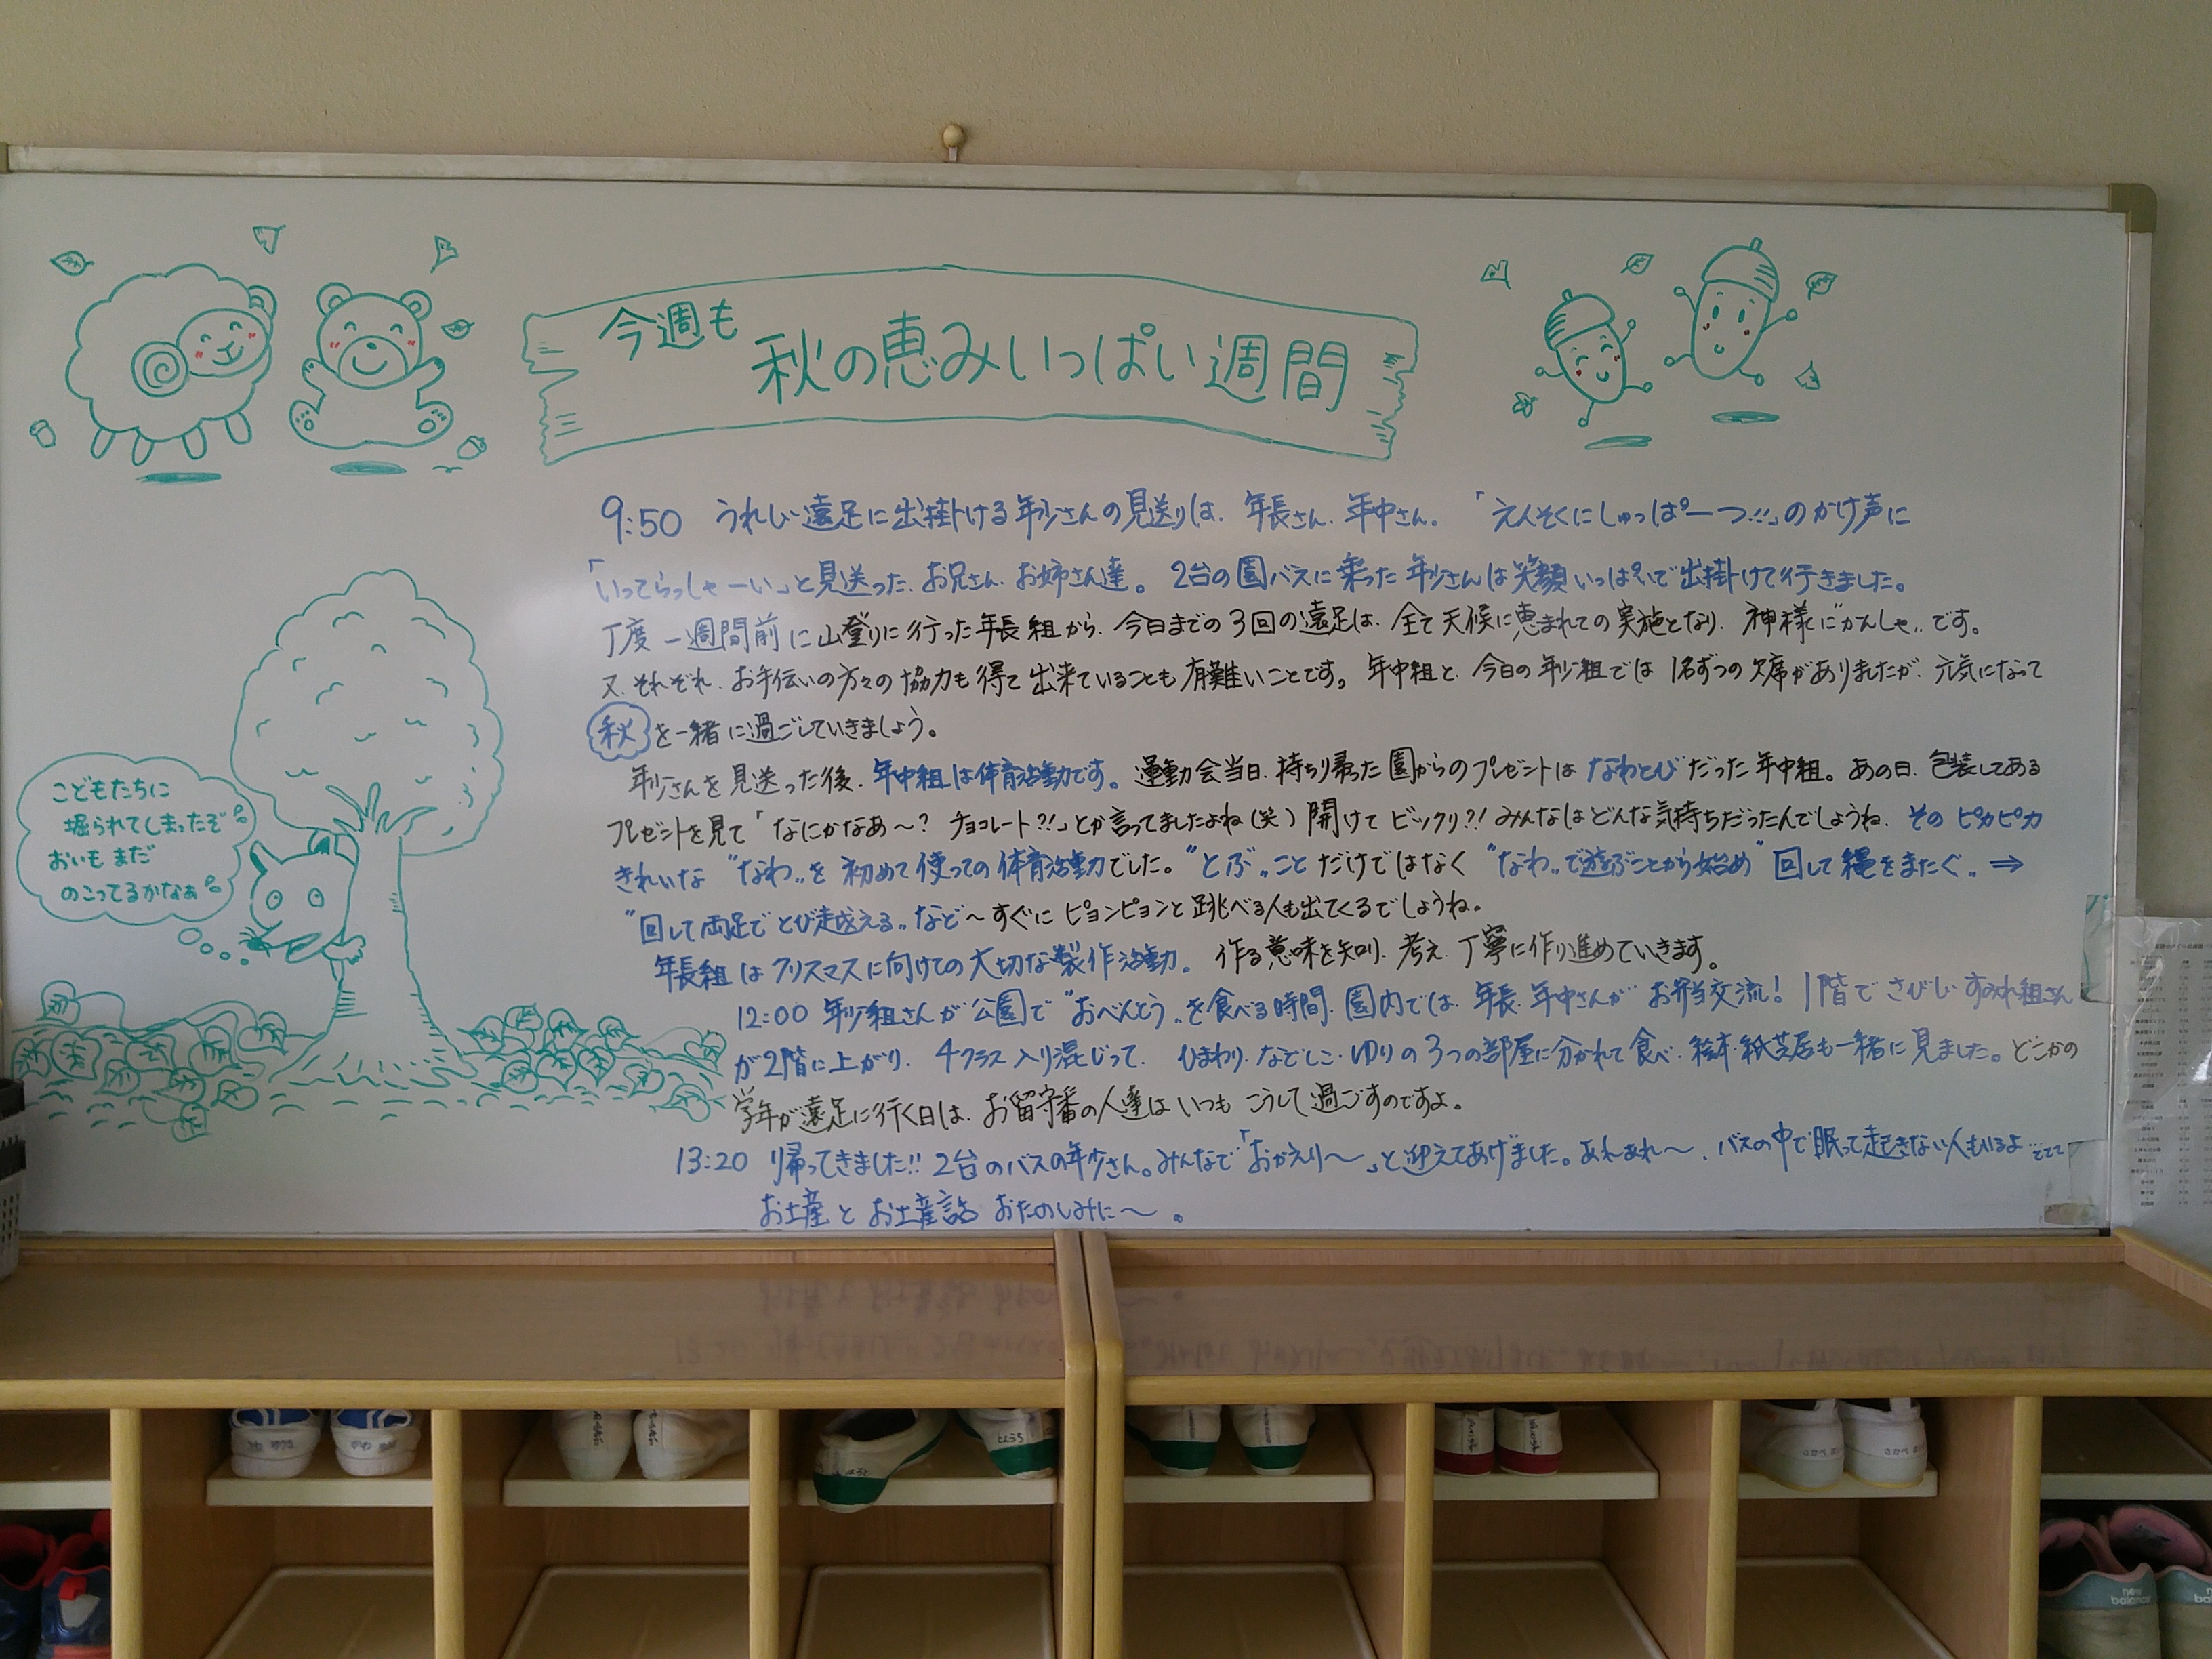 今週も
秋の恵みいっぱい週間
9:50 うれしい遠足に出掛ける年少さんの見送りは、年長さん、年中さん。「えんそくにしゅっぱーつ!!」のかけ声に
「いってらっしゃーい」と見送った、お兄さん、お姉さん達。2台の園バスに乗った年少さんは笑顔いっぱいで出掛けて行きました。
丁度一週間前に山登りに行った年長組から、今日までの3回の遠足は、全て天候に恵まれての実施となり、神様に"かんしゃ"です。
又、それぞれ、お手伝いの方々の協力も得て出来ていることも有難いことです。年中組と、今日の年少組では1名ずつの欠席がありましたが、元気になって
秋を一緒に過ごしていきましょう。
年少さんを見送った後、年中組は体育活動です。運動会当日、持ち帰った園からのプレゼントはなわとびだった年中組。あの日、包装してある
プレゼントを見て「なにかなあ～? チョコレート?!」とか言ってましたよね(笑)開けてビックリ?!みんなはどんな気持ちだったんでしょうね、そのピカピカ
きれいな"なわ"を初めて使っての体育活動でした。"とぶ"ことだけではなく"なわ"で遊ぶことから始め"回して縄をまたぐ"⇒
"回して両足でとび越える"など～すぐにピョンピョンと跳べる人も出てくるでしょうね。
年長組はクリスマスに向けての大切な製作活動。作る意味を知り、考え、丁寧に作り進めていきます。
12:00 年少組さんが公園で"おべんとう"を食べる時間、園内では、年長、年中さんがお弁当交流!1階でさびしいすみれ組さん
が2階に上がり、4クラス入り混じって、ひまわり・なでしこ・ゆりの3つの部屋に分かれて食べ、絵本・紙芝居も一緒に見ました。どこかの
学年が遠足に行く日は、お留守番の人達はいつもこうして過ごすのですよ。
13:20 帰ってきました!!2台のバスの年少さん。みんなで「おかえり～」と迎えてあげました。あれあれ～、バスの中で眠って起きない人もいるよ
お土産とお土産話おたのしみに～。
こどもたちに
堀られてしまったぞ
おいもまだ
のこってるかなぁ
new balance